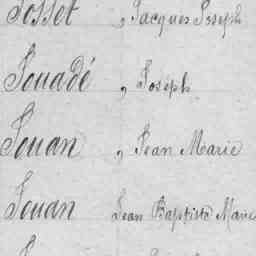 Josset, Jacques Joseph
Jouadé, Joseph
Jouan, Jean Marie
Jouan Jean Baptiste Marie